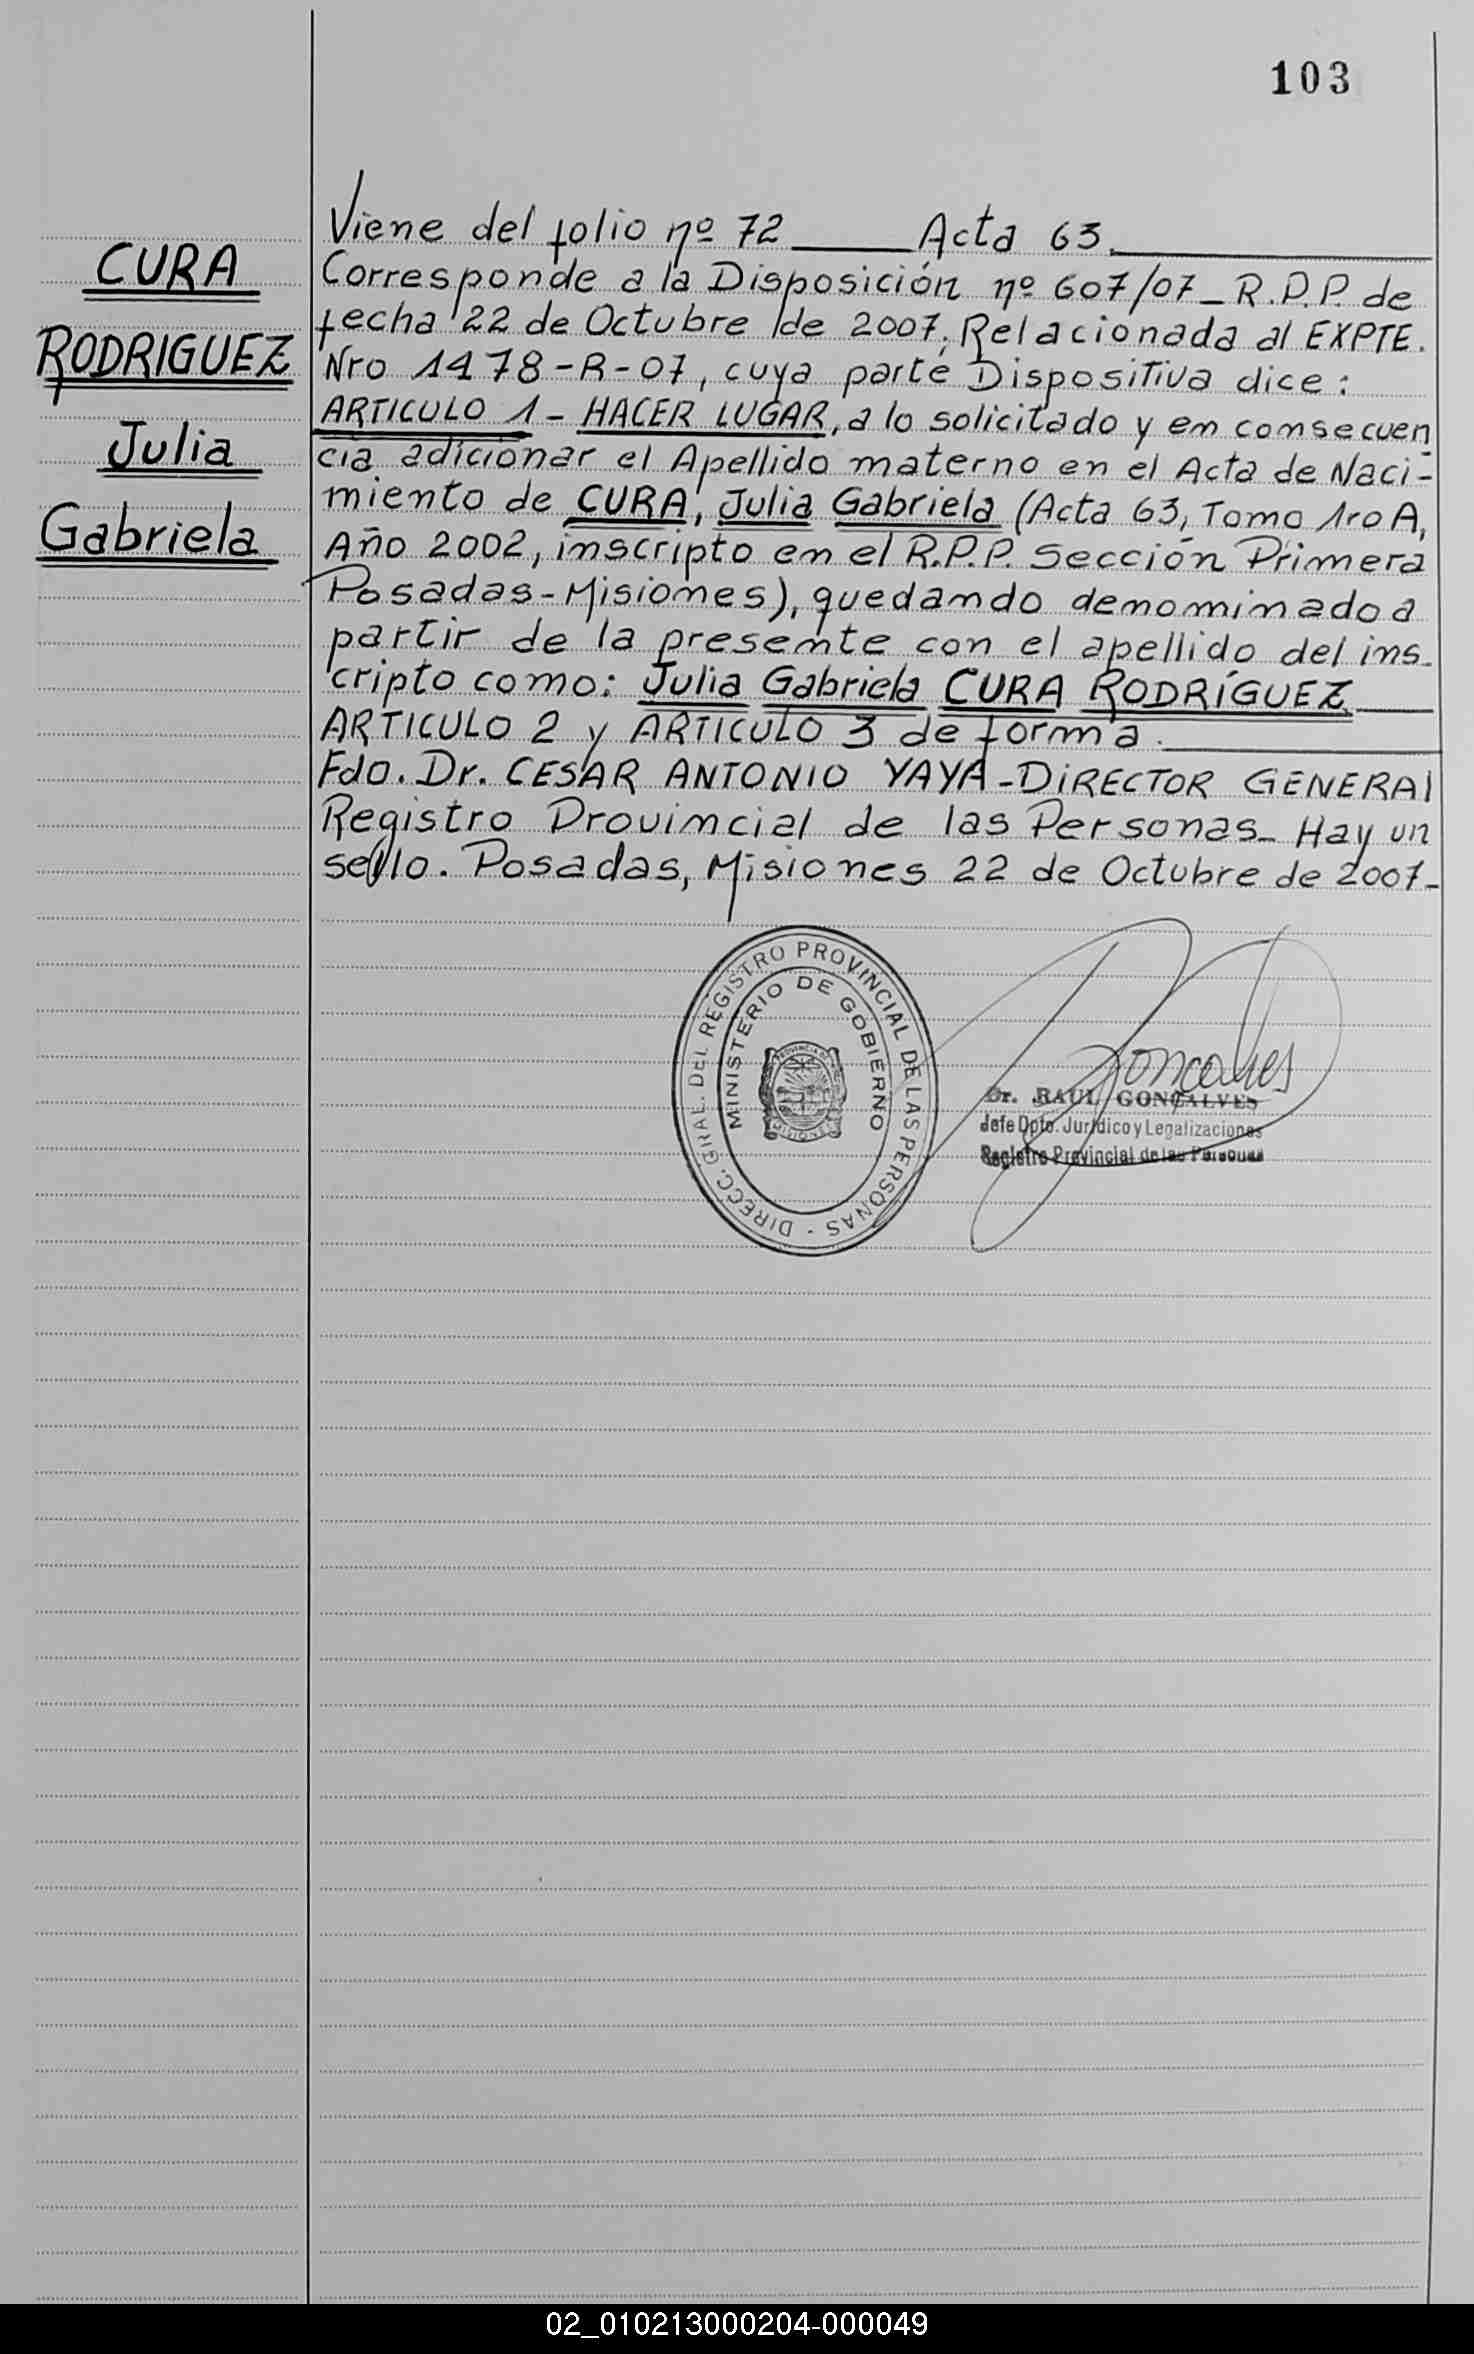 103
CURA
RODRIGUEZ
Julia
Gabriela
Viene del folio nº 72 ____ Acta 63.____
Corresponde a la Disposición nº 607/07_ R.P.P. de
fecha 22 de Octubre de 2007, Relacionada al EXPTE.
Nro 1478-R-07, cuya parte Dispositiva dice:
ARTICULO 1- HACER LUGAR, a lo solicitado y en consecuen
cia adicionar el Apellido materno en el Acta de Naci-
miento de CURA, Julia Gabriela (Acta 63, Tomo 1ro A,
Año 2002, inscripto en el R.P.P. Sección Primera
Posadas-Misiones), quedando denominado a
partir de la presente con el apellido del ins-
cripto como: Julia Gabriela CURA RODRÍGUEZ____
ARTICULO 2 y ARTICULO 3 de forma.____
Fdo. Dr. CESAR ANTONIO YAYA-DIRECTOR GENERAL
Registro Provincial de las Personas_ Hay un
sello. Posadas, Misiones 22 de Octubre de 2007_
DIRECC. GRAL. DEL REGISTRO PROVINCIAL DE LAS PERSONAS -
MINISTERIO DE GOBIERNO
PROVINCIA DE
MISIONES
Goncalves
Dr. RAUL GONÇALVES
Jefe Dpto. Jurídico y Legalizaciones
Registro Provincial de las Personas
02_010213000204-000049